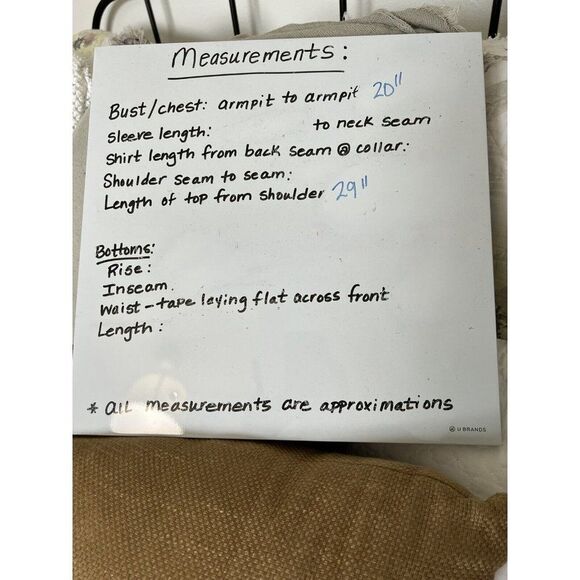 Measurements:
Bust/chest: armpit to armpit 20"
Sleeve length: to neck seam
Shirt length from back seam @ collar:
Shoulder seam to seam:
Length of top from shoulder 29"
Bottoms:
Rise:
Inseam.
Waist - tape laying flat across front
Length:
* all measurements are approximations
U BRANDS